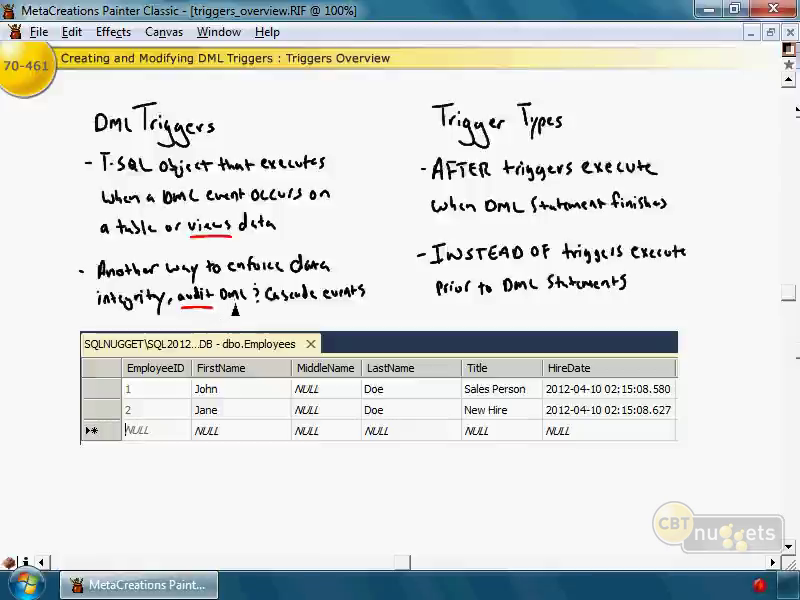 MetaCreations Painter Classic - [triggers_overview.RIF @ 100%]
File Edit Effects Canvas Window Help
70-461 Creating and Modifying DML Triggers : Triggers Overview
DML Triggers
- T-SQL object that executes
when a DML event occurs on
a table or views data
- Another way to enforce data
integrity, audit DML ? Cascade events
Trigger Types
- AFTER triggers execute
when DML statement finishes
- INSTEAD OF triggers execute
prior to DML statements
SQLNUGGET\SQL2012...DB - dbo.Employees
EmployeeID FirstName MiddleName LastName Title HireDate
1 John NULL Doe Sales Person 2012-04-10 02:15:08.580
2 Jane NULL Doe New Hire 2012-04-10 02:15:08.627
NULL NULL NULL NULL NULL NULL
CBT nuggets
MetaCreations Paint...